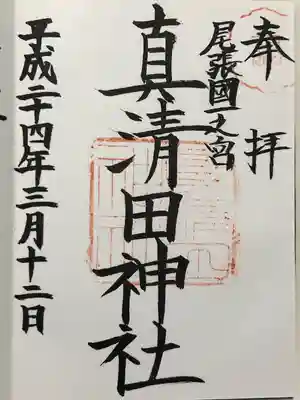 奉拝
尾張國一之宮
真清田神社
平成二十四年三月十二日